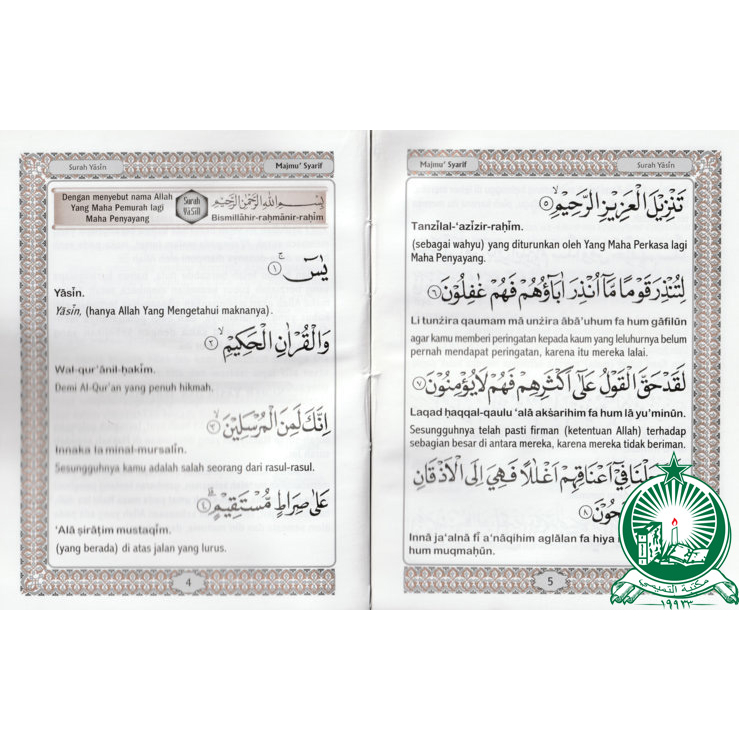 Surah Yāsīn
Majmu' Syarif
Dengan menyebut nama Allah
Yang Maha Pemurah lagi
Maha Penyayang
Surah
YāSīn
بِسْمِ اللهِ الرَّحْمٰنِ الرَّحِيْمِ
Bismillāhir-raḥmānir-raḥīm
يٰسۤ ۚ ١
Yāsīn.
Yāsīn, (hanya Allah Yang Mengetahui maknanya).
وَالْقُرْاٰنِ الْحَكِيْمِۙ ٢
Wal-qur'ānil-ḥakīm.
Demi Al-Qur'an yang penuh hikmah.
اِنَّكَ لَمِنَ الْمُرْسَلِيْنَۙ ٣
Innaka la minal-mursalīn.
Sesungguhnya kamu adalah salah seorang dari rasul-rasul.
عَلٰى صِرَاطٍ مُّسْتَقِيْمٍۗ ٤
'Alā ṣirāṭim mustaqīm.
(yang berada) di atas jalan yang lurus.
4
Majmu' Syarif
Surah Yāsīn
تَنْزِيْلَ الْعَزِيْزِ الرَّحِيْمِۙ ٥
Tanzīlal-'azīzir-raḥīm.
(sebagai wahyu) yang diturunkan oleh Yang Maha Perkasa lagi
Maha Penyayang.
لِتُنْذِرَ قَوْمًا مَّآ اُنْذِرَ اٰبَاۤؤُهُمْ فَهُمْ غٰفِلُوْنَ ٦
Li tunżira qaumam mā unżira ābā'uhum fa hum gāfilūn
agar kamu memberi peringatan kepada kaum yang leluhurnya belum
pernah mendapat peringatan, karena itu mereka lalai.
لَقَدْ حَقَّ الْقَوْلُ عَلٰٓى اَكْثَرِهِمْ فَهُمْ لَا يُؤْمِنُوْنَ ٧
Laqad ḥaqqal-qaulu 'alā akśarihim fa hum lā yu'minūn.
Sesungguhnya telah pasti firman (ketentuan Allah) terhadap
sebagian besar di antara mereka, karena mereka tidak beriman.
فِيْٓ اَعْنَاقِهِمْ اَغْلٰلًا فَهِيَ اِلَى الْاَذْقَانِ
٨
Innā ja'alnā fī a'nāqihim aglālan fa hiya
hum muqmaḥūn.
5
مكتبة التميمي
١٩٩٢٣